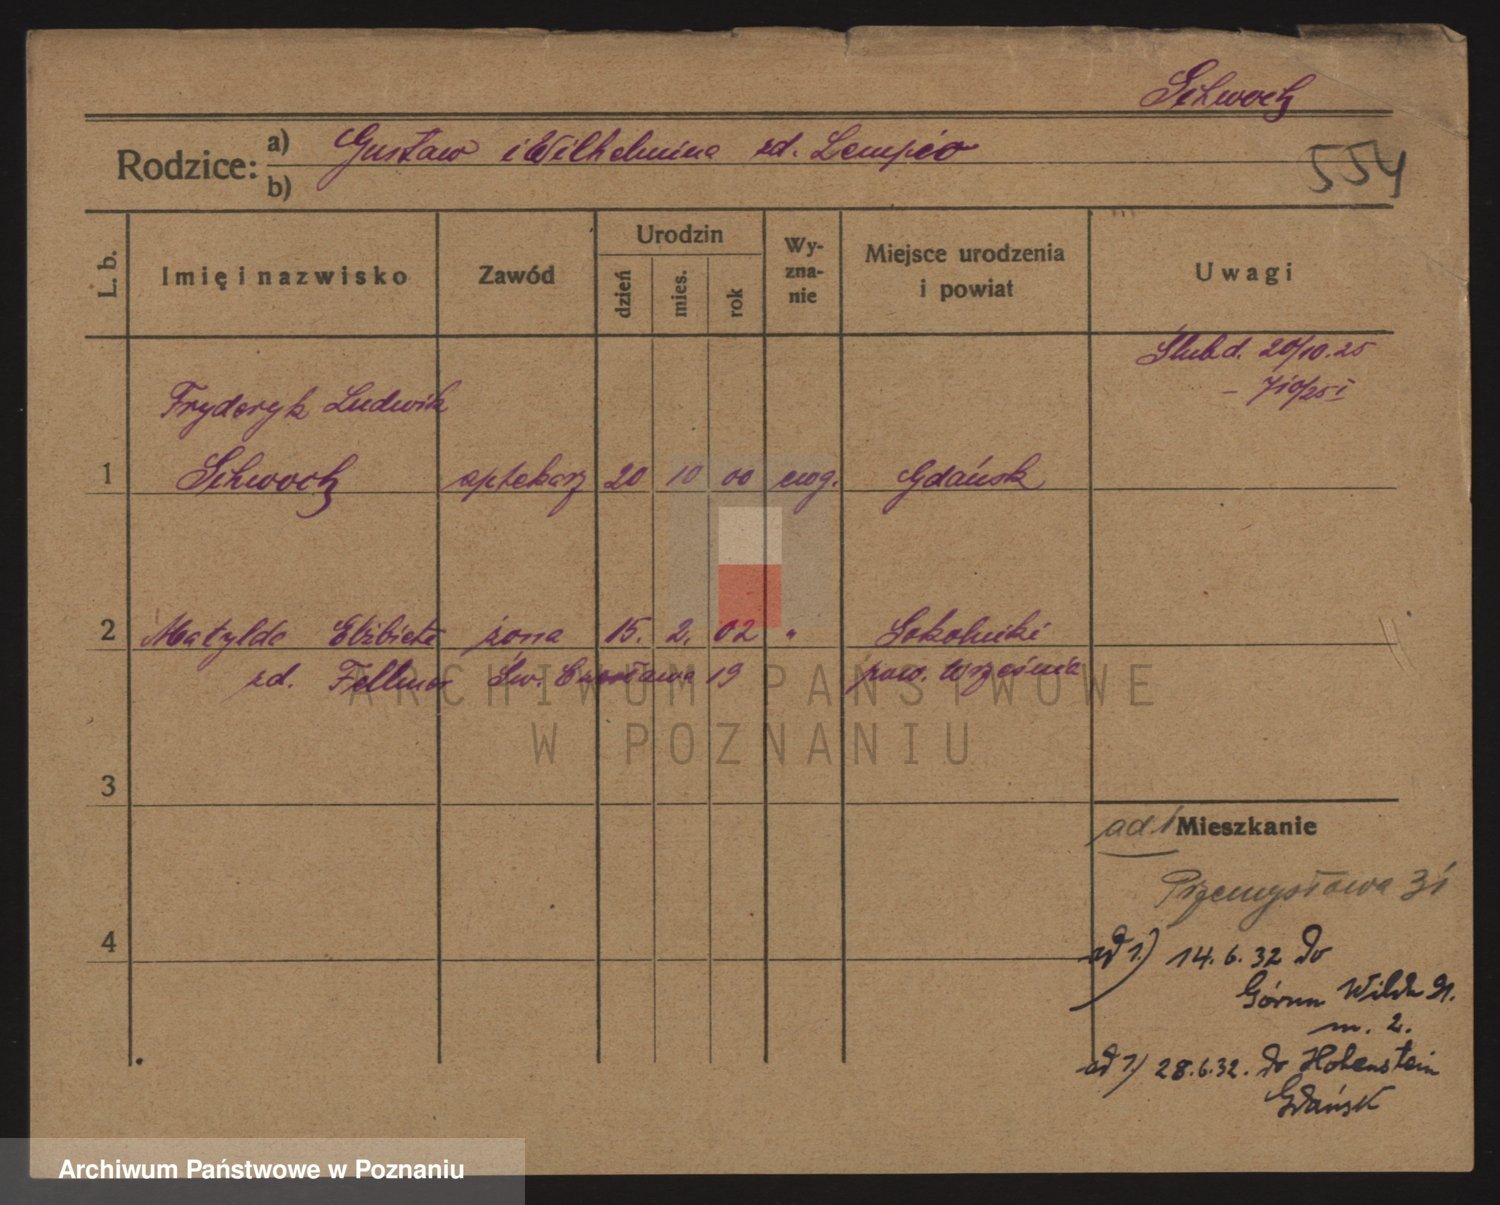 Schwoch
Rodzice: a) Gustaw i Wilhelmina zd. Lempio
b)
554
L. b. Imię i nazwisko Zawód Urodzin dzień mies. rok Wy-zna-nie Miejsce urodzenia i powiat Uwagi
Ślub d. 20/10.25
Fryderyk Ludwik
1 Schwoch aptekarz 20 10 00 ewg. Gdańsk
2 Matylda Elżbieta żona 15. 2. 02 " Sokolniki
zd. Fellmer Św. Czesława 19 pow. Września
3
ad 1 Mieszkanie
Przemysłowa 31
4
ad 1.) 14.6.32 do
Górna Wilda
m. 2.
ad 1.) 28.6.32. do Hohenstein
Gdańsk
ARCHIWUM PAŃSTWOWE
W POZNANIU
Archiwum Państwowe w Poznaniu